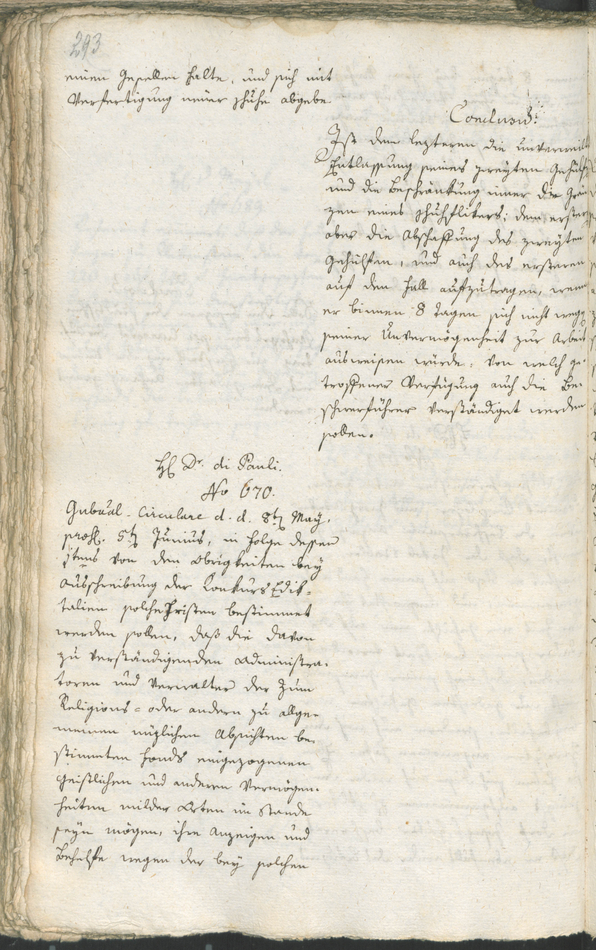 293
einen Gesellen halte, und sich mit
Verfertigung neuer Schuhe abgebe
Conclusum:
Ist dem lezteren die unverweilte
Entlassung seines zweyten Gehülfen
und die Beschränkung inner die Grän-
zen eines Schuhflikers; dem ersten
aber die Abschaffung des zweyten
Gehülfen, und auch des ersteren
auf den Fall aufzutragen, wenn
er binnen 8 Tagen sich nicht wegen
seiner Unvermögenheit zur Arbeit
ausweisen würde, von welch ge-
troffener Verfügung auch die Be-
schwerführer verständiget werden
sollen.
H. Dr. di Pauli.
No 670.
Gubernal-Circulare d. d. 8t May,
praes. 5t Junius, in Folge dessen
1tens von den Obrigkeiten bey
Ausschreibung der Konkurs Edik-
talien solche Fristen bestimmet
werden sollen, daß die davon
zu verständigenden Administra-
toren und Verwalter der zum
Religions- oder andern zu allge-
meinen nüzlichen Absichten be-
stimmten Fonds eingezogenen
geistlichen und anderen Vermögen-
heiten milder Orten im Stande
seyn mögen, ihre Anzeigen und
Behelfe wegen der bey solchen